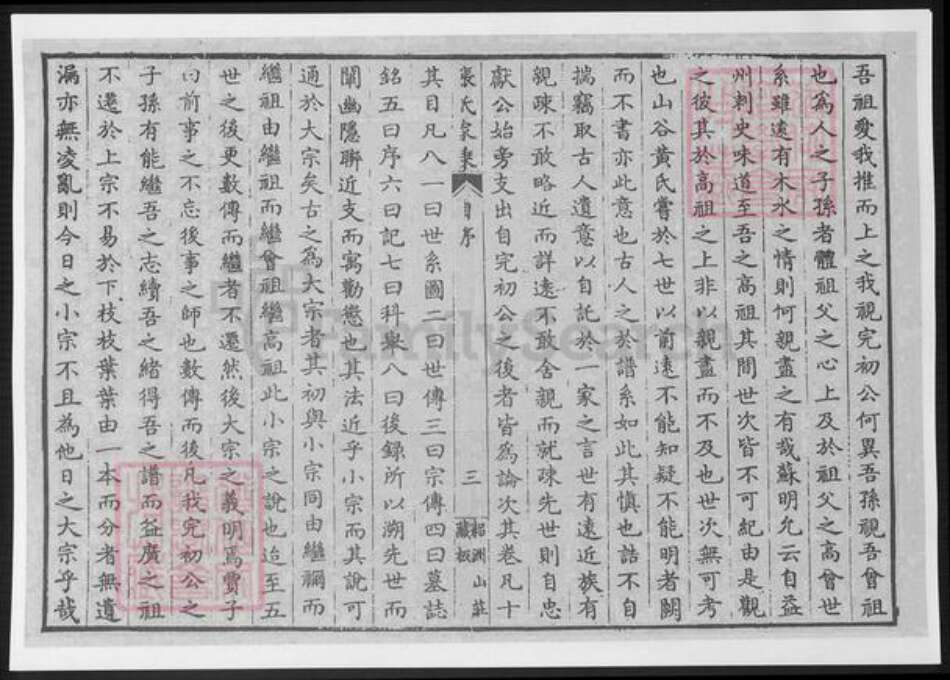 吾祖愛我推而上之我視完初公何異吾孫視吾曾祖
也為人之子孫者體祖父之心上及於祖父之高曾世
系雖遠有木水之情則何親盡之有哉蘇明允云自益
州刺史味道至吾之高祖其間世次皆不可紀由是觀
之彼其於高祖之上非以親盡而不及也世次無可考
也山谷黃氏嘗於七世以前遠不能知疑不能明者闕
而不書亦此意也古人之於譜系如此其慎也誥不自
揣竊取古人遺意以自託於一家之言世有遠近族有
親疎不敢略近而詳遠不敢舍親而就疎先世則自忠
獻公始旁支出自完初公之後者皆為論次其卷凡十
張氏家乘 自序 三 招洲山莊藏板
其目凡八一曰世系圖二曰世傳三曰宗傳四曰墓誌
銘五曰序六曰記七曰科舉八曰後錄所以溯先世而
闡幽隱聯近支而寓勸懲也其法近乎小宗而其說可
通於大宗矣古之為大宗者其初與小宗同由繼禰而
繼祖由繼祖而繼曾祖繼高祖此小宗之說也迨至五
世之後更數傳而繼者不遷然後大宗之義明焉賈子
曰前事之不忘後事之師也數傳而後凡我完初公之
子孫有能繼吾之志續吾之緒得吾之譜而益廣之祖
不遷於上宗不易於下枝枝葉葉由一本而分者無遺
漏亦無凌亂則今日之小宗不且為他日之大宗乎哉
FamilySearch